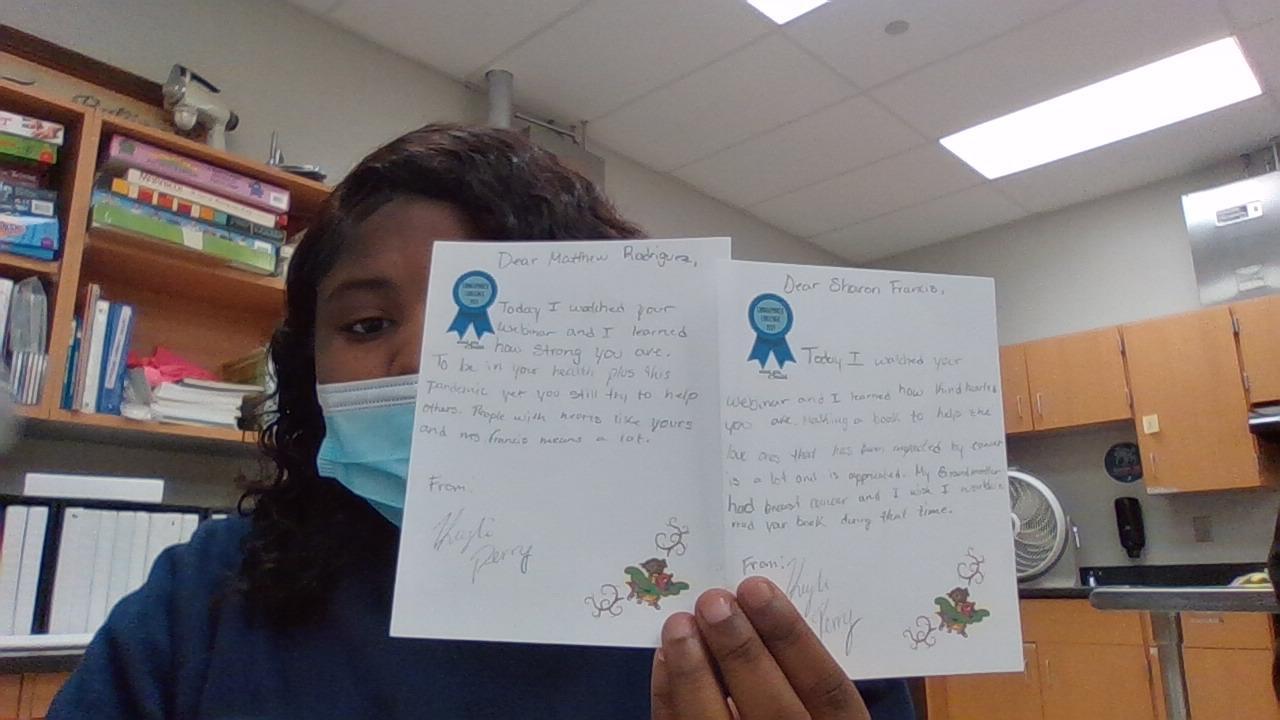 Dear Matthew Rodriguez,
Today I watched your
webinar and I learned
how strong you are.
To be in your health plus this
pandemic yet you still try to help
others. People with hearts like yours
and mrs Francis means a lot.
From:
Kayli
Perry
Dear Sharon Francis,
CHALLENGE
Today I watched your
webinar and I learned how kind hearted
you are. Making a book to help the
love ones that has been by cancer
is a lot and is appreciated. My Grandmother
had breast cancer and I wish I
read your book during that time.
From:
Kayli
Perry